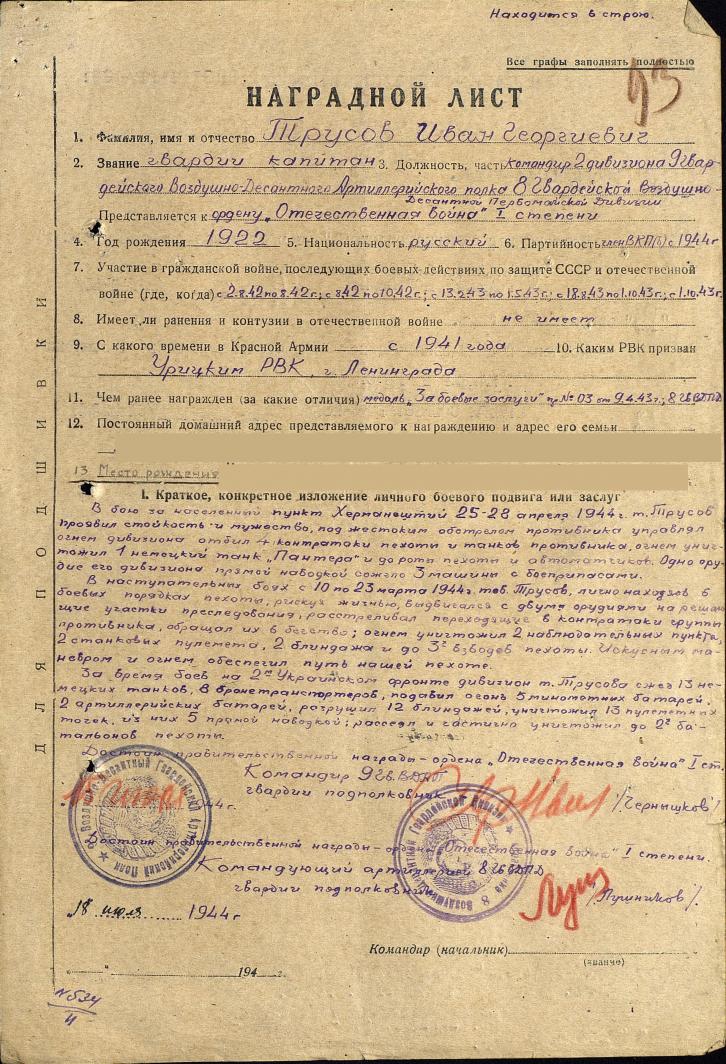 Находится в строю.
Все графы заполнять полностью
93
НАГРАДНОЙ ЛИСТ
1. Фамилия, имя и отчество Трусов Иван Георгиевич
2. Звание гвардии капитан 3. Должность, часть командир 2 дивизиона 9 Гвар-
дейского Воздушно-Десантного Артиллерийского полка 8 Гвардейской Воздушно-
Десантной Первомайской Дивизии
Представляется к ордену „Отечественная война" I степени
4. Год рождения 1922 5. Национальность русский 6. Партийность член ВКП(б) с 1944 г
7. Участие в гражданской войне, последующих боевых действиях по защите СССР и отечественной
войне (где, когда) с 2.8.42 по 8.42 г.; с 8.42 по 10.42 г.; с 13.2.43 по 1.5.43 г.; с 18.8.43 по 1.10.43 г.; с 1.10.43 г.
8. Имеет ли ранения и контузии в отечественной войне не имеет
9. С какого времени в Красной Армии с 1941 года 10. Каким РВК призван
Урицким РВК, г. Ленинграда
11. Чем ранее награжден (за какие отличия) медаль „За боевые заслуги" пр. № 03 от 9.4.43 г.; 8 ГвВДД
12. Постоянный домашний адрес представляемого к награждению и адрес его семьи
13 Место рождения
I. Краткое, конкретное изложение личного боевого подвига или заслуг
В бою за населенный пункт Херманештий 25-28 апреля 1944 г. т. Трусов
проявил стойкость и мужество, под жестоким обстрелом противника управлял
огнем дивизиона отбил 4 контратаки пехоты и танков противника, огнем унич-
тожил 1 немецкий танк „Пантера" и до роты пехоты и автоматчиков. Одно ору-
дие его дивизиона прямой наводкой сожгло 3 машины с боеприпасами.
В наступательных боях с 10 по 23 марта 1944 г. тов. Трусов, лично находясь в
боевых порядках пехоты, рискуя жизнью, выдвигался с двумя орудиями на решаю-
щие участки преследования, расстреливал переходящие в контратаки группы
противника, обращал их в бегство; огнем уничтожил 2 наблюдательных пункта,
2 станковых пулемета, 2 блиндажа и до 3х взводов пехоты. Искусным ма-
невром и огнем, обеспечил путь нашей пехоте.
За время боев на 2ом Украинском фронте дивизион т. Трусова сжег 13 не-
мецких танков, 8 бронетранспортеров, подавил огонь 5 минометных батарей,
2 артиллерийских батарей, разрушил 12 блиндажей, уничтожил 13 пулеметных
точек, из них 5 прямой наводкой; рассеял и частично уничтожил до 2х ба-
тальонов пехоты.
Достоин правительственной награды-ордена „Отечественная война" I ст.
Командир 9 Гв. ВДАП
гвардии подполковник /Чернышков/
1944 г.
Достоин правительственной награды-ордена „Отечественная война" I степени.
Командующий артиллерией 8 ГвВДД
гвардии подполковник /Лушников/.
18 июля 1944 г
Командир (начальник)
(звание)
194 г.
№ 524
11
ДЛЯ ПОДШИВКИ